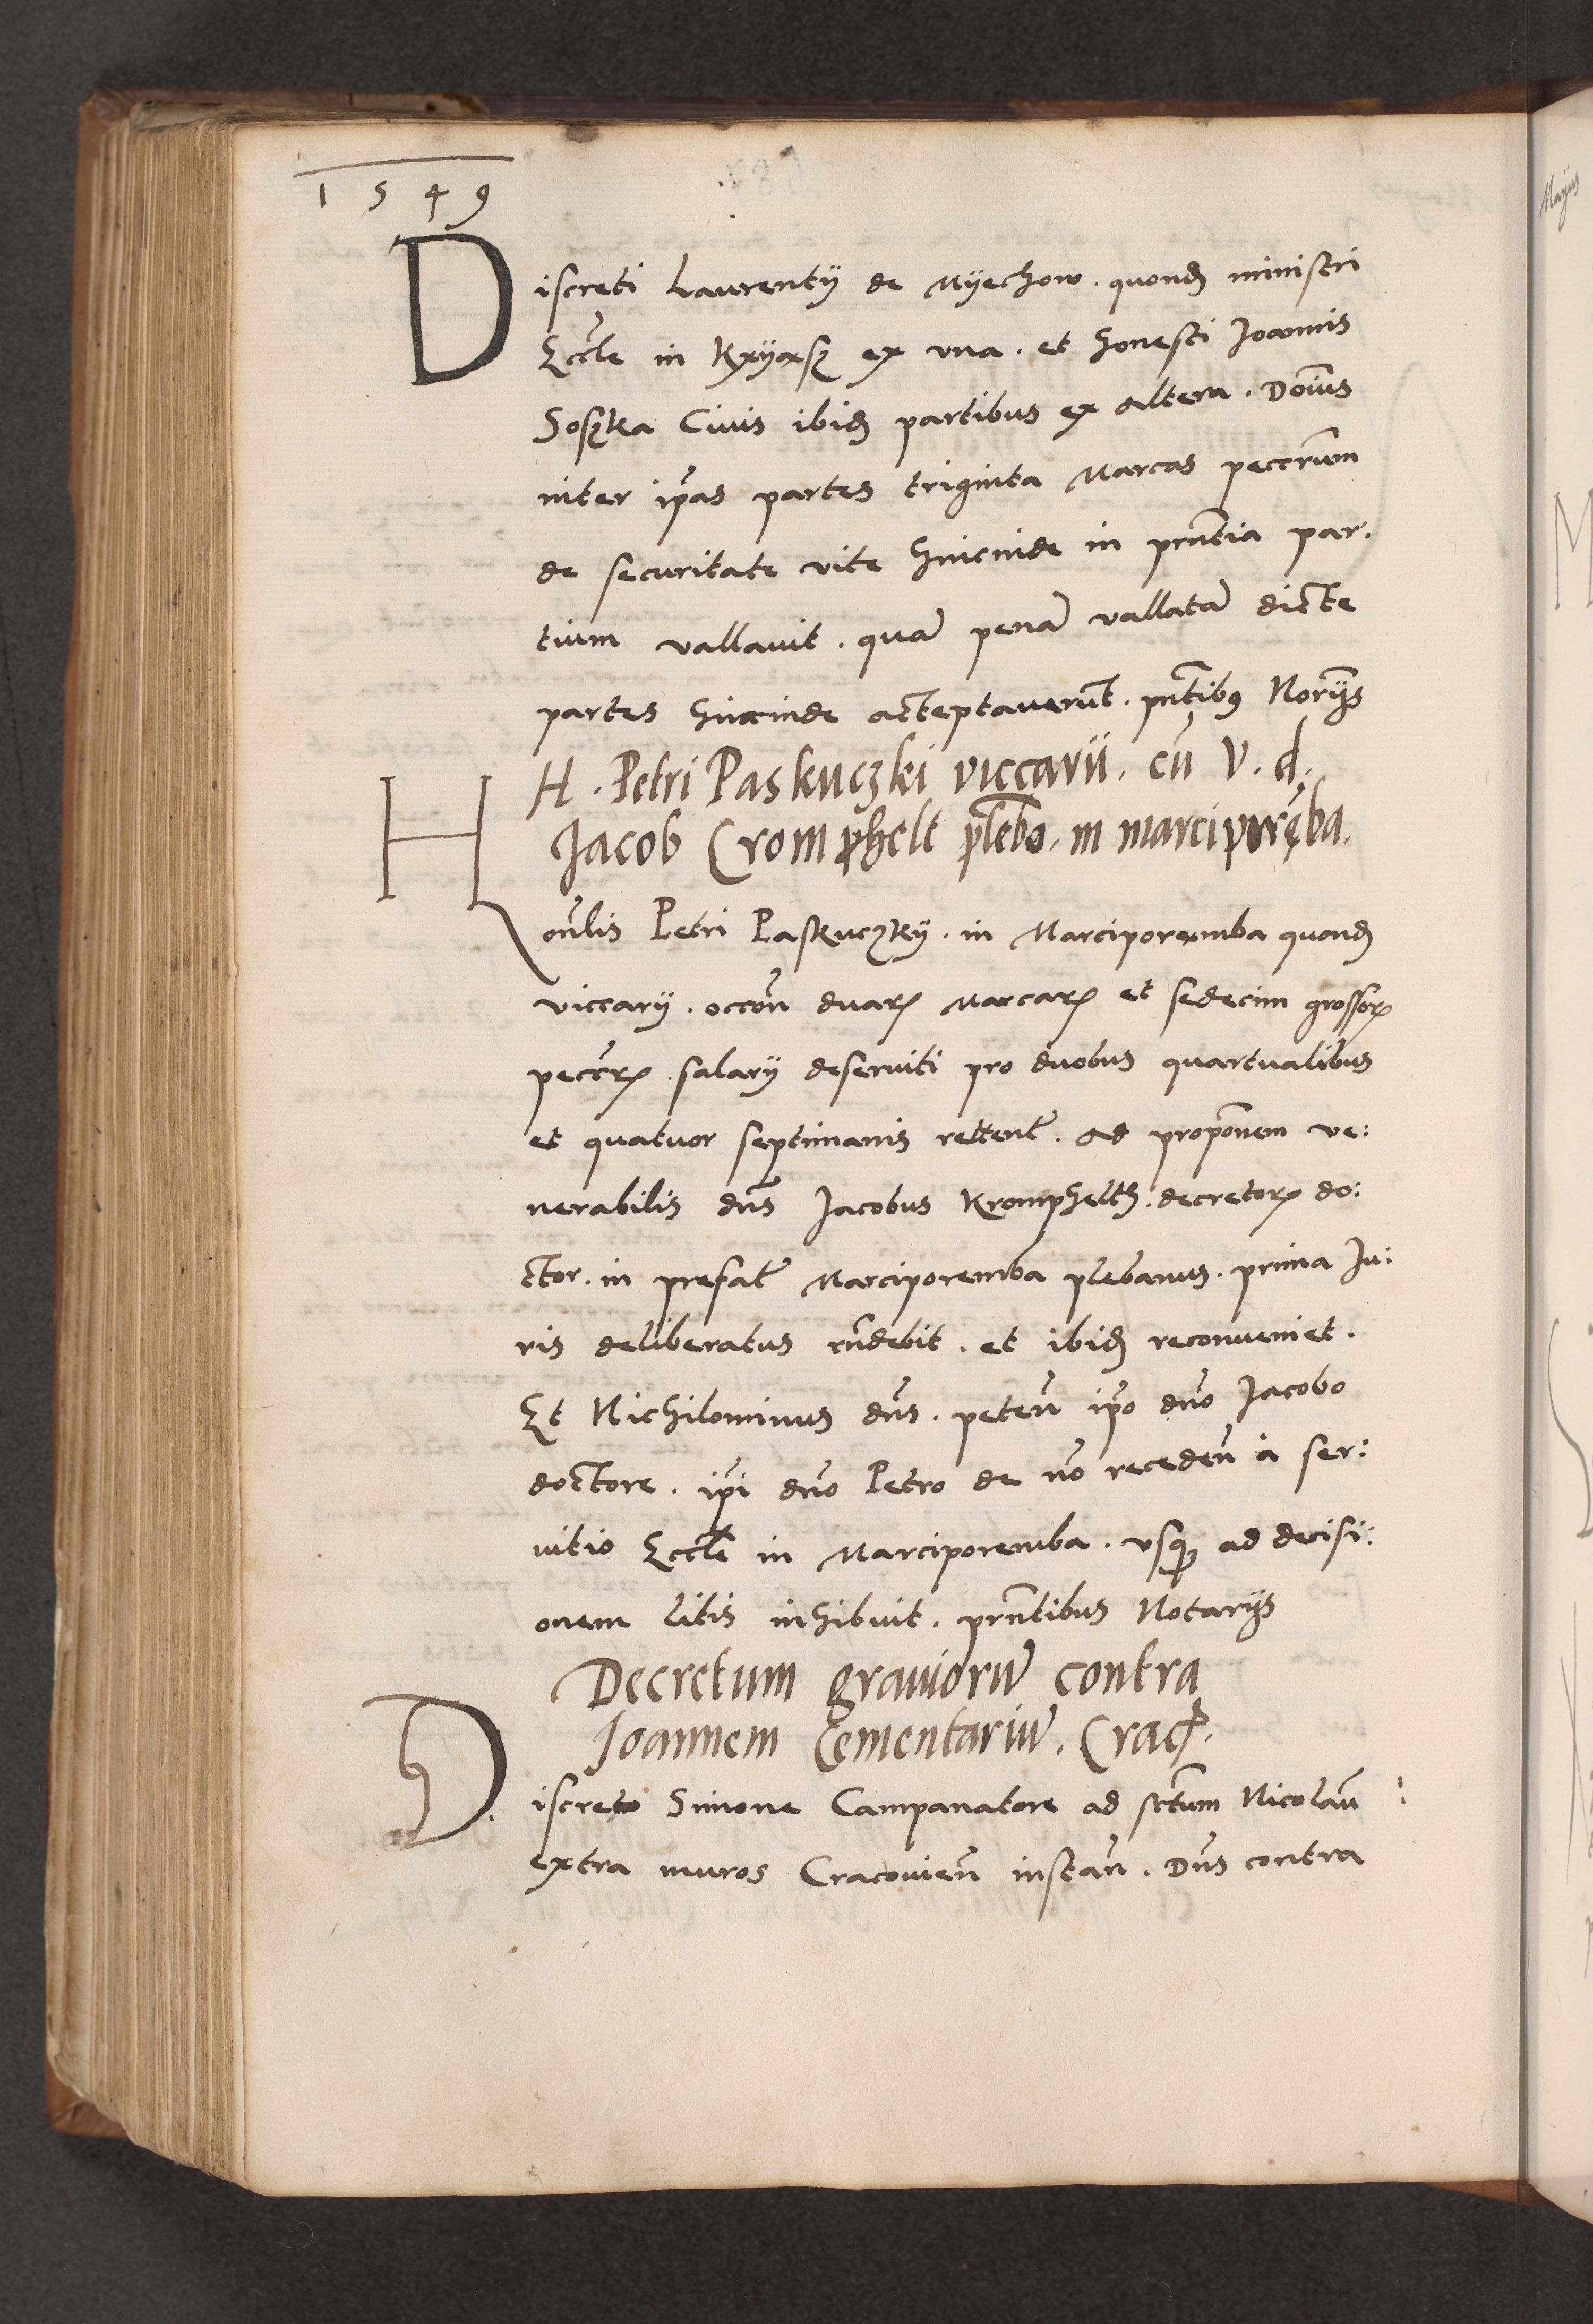 1549
Discreti Laurentÿ de Myechow. quond ministri
Eccle in Kxyasz ex vna. et honesti Joannis
Soszka Ciuis ibid partibus ex altera. Domius
inter ipas partes triginta Marcas peccrum
de securitate vite hincinde in prntia par:
tium vallauit. qua pena vallata dicte
partes hincinde acceptauerut. pntibus Norÿs
H. Petri Paskuczki viccarii. cu V. d.
Jacob Cromphelt plebo. in marciporęba.
Honlis Petri Paskuczky. in Marciporemba quond
viccarÿ. occon duar Marcar et sedecim grossor
peccr. salarÿ deseruiti pro duobus quartualibus
et quatuor septimanis rettent. ad proponem ve:
nerabilis dns Jacobus Kromphelth. decretor do:
ctor. in prefat Marciporemba plebanus. prima Ju:
ris deliberatus rndebit. et ibid reconueniet.
Et Nichilominus dns. peten ipo dno Jacobo
doctore. ipi dno Petro de no receden a ser:
uitio Eccle in Marciporemba. vsq ad decisi:
onem litis inhibuit. prntibus Notarÿs
Decretum grauioru contra
Joannem Cementariu. Crac.
Discreto Simone Campanatore ad sctum Nicolau
extra muros Cracouien instan. Dns contra
Mayus